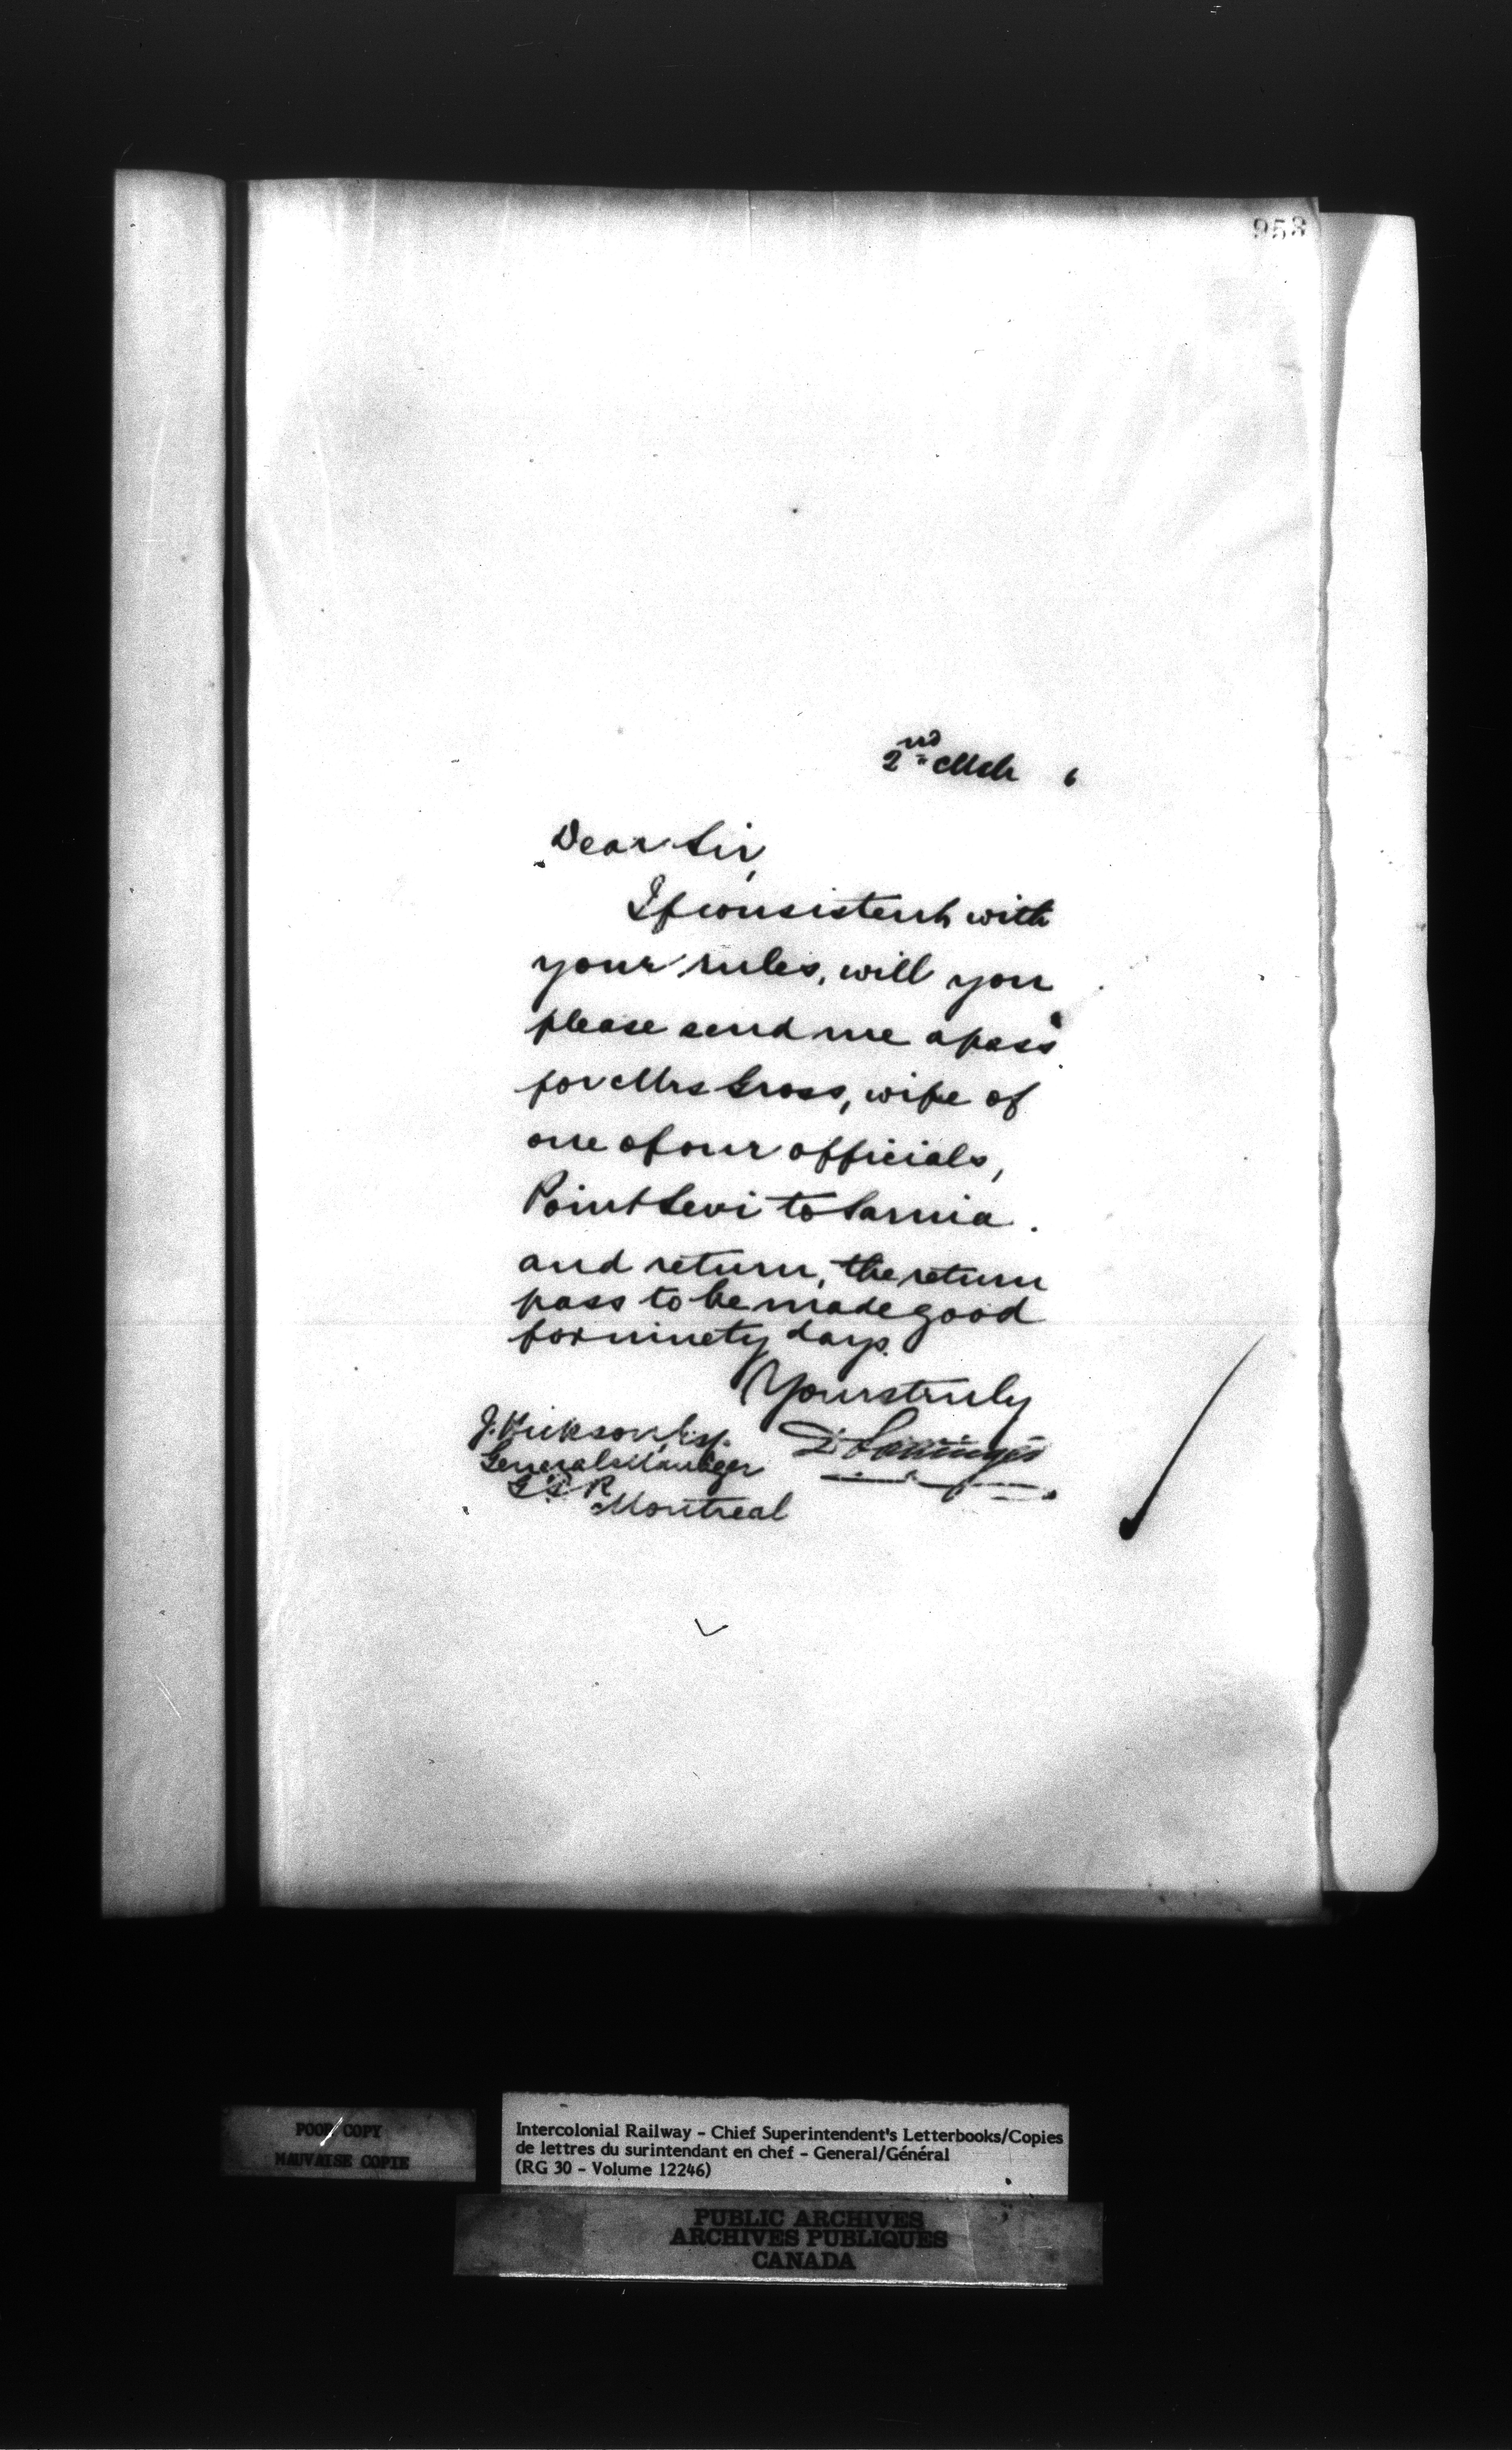 953
2nd Mch 6
Dear Sir,
If consistent with
your rules, will you
please send me a pass
for Mrs Gross, wife of
one of our officials,
Point Levi to Sarnia
and return, the return
pass to be made good
for ninety days.
Yours truly
J. Hickson, Esq.
D Pottinger
General Manager
G T R
Montreal
POOR COPY
MAUVAISE COPIE
Intercolonial Railway - Chief Superintendent's Letterbooks/Copies
de lettres du surintendant en chef - General/Général
(RG 30 - Volume 12246)
PUBLIC ARCHIVES
ARCHIVES PUBLIQUES
CANADA